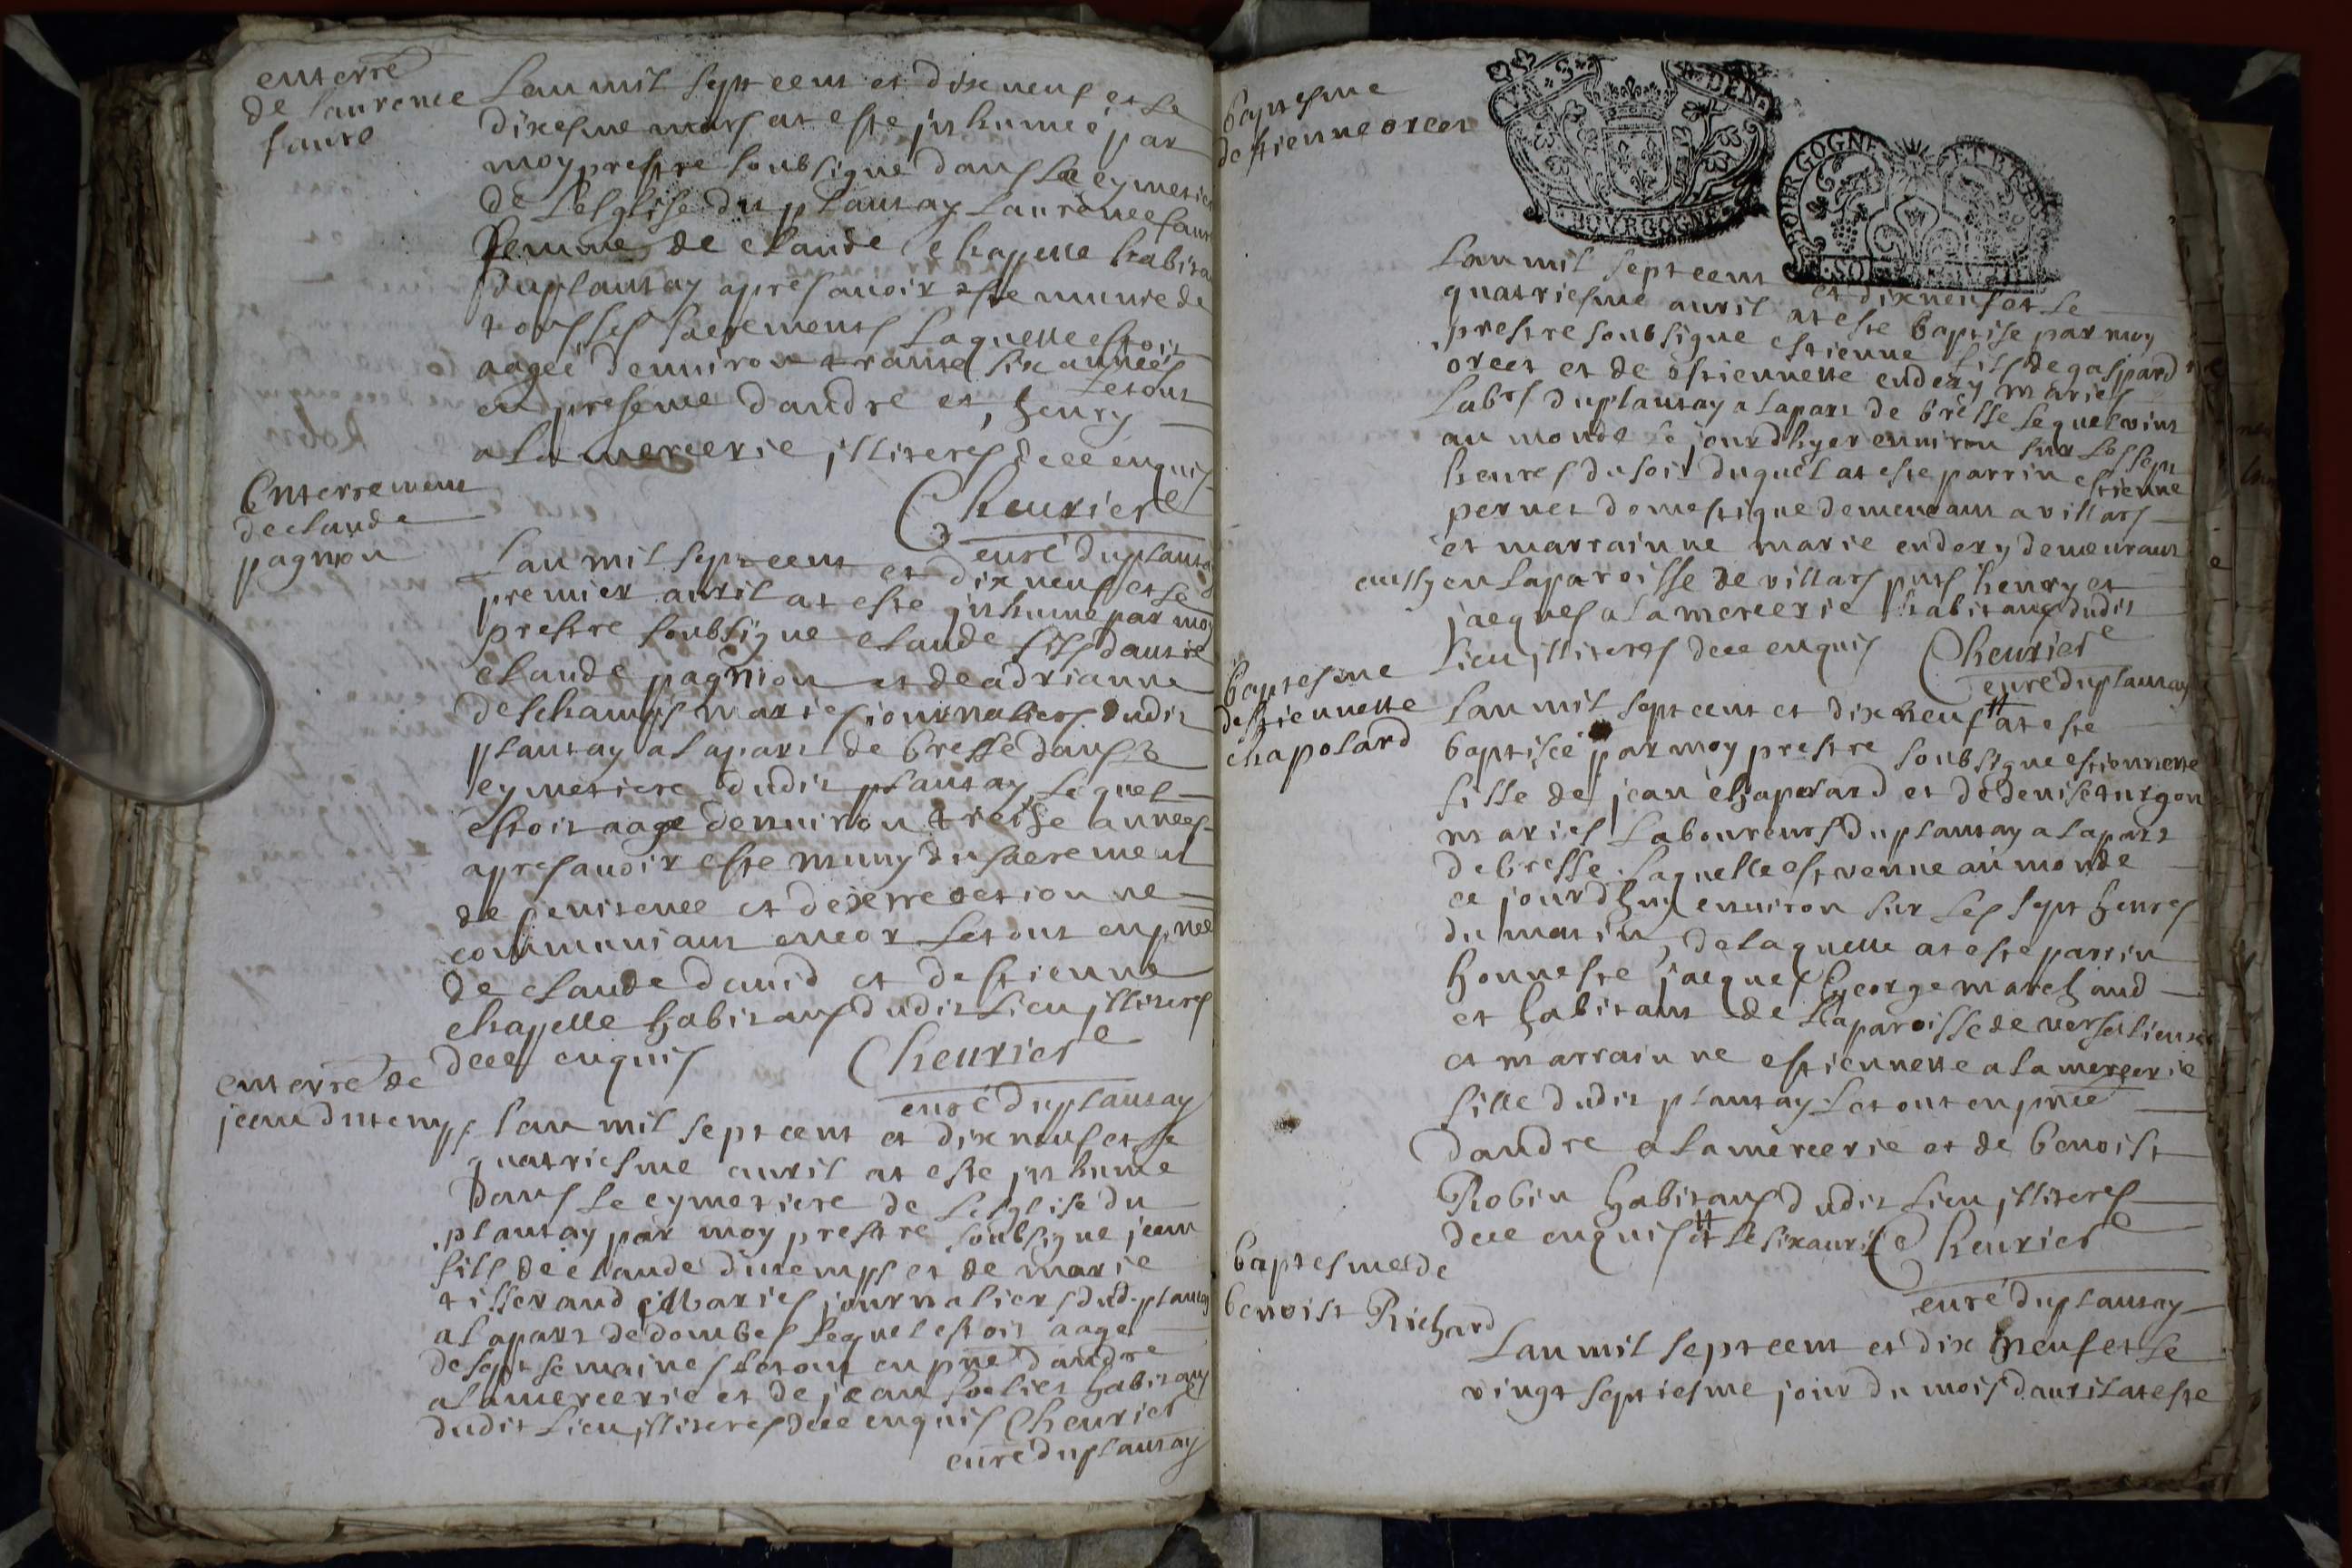 enterré
de laurence
faure
Lan mil sept cent et dixneuf et le
dixesme mars at esté jnhumeé par
moy prestre soubsigne dans le cymetier
de Lesglise du plantay Laurence faure
femme de claude chapelle habita
du plantay apres avoir este munie de
tous ses sacrements Laquelle estoit
aageé denviron trante six anneés
Le tout
en presence dandre et henry
alamercerie jlliterés de ce enquis
Chevrier
curé du plantay
Enterrement
de claude
pagnon
Lan mil sept cent et dix neuf et le
premier auril at esté jnhumé par moy
prestre soubsigne claude fils dautre
claude pagnion et de adrianne
deschamps mariés journaliers dudit
plantay a la part de bresse dans le
cymetiere dudit plantay Lequel
estoit aagé denviron treise anneés
apres avoir esté muny du sacrement
de penitence et dexerection ne
communiant encor Le tout en pnce
de claude david et destienne
chapelle habitans dudit Lieu jlliterés
de ce enquis Chevrier
curé du plantay
enterré de
jean dutemps
Lan mil sept cent et dix neuf et le
quatriesme auril at este jnhumé
dans le cymetiere de Lesglise du
plantay par moy prestre soubsigne jean
fils de claude dutemps et de marie
tisserand Mariés journaliers dud. plantay
a la part de dombes Lequel estoit aagé
de sept semaines Le tout en pnce dandre
alamercerie et de jean habitans
dudit Lieu jlliterés de ce enquis Chevrier
curé du plantay
baptesme
destienne orcet
BOVRGOGNE
Lan mil sept cent et dixneuf et le
quatriesme auril at este baptisé par moy
prestre soubsigne estienne fils de gaspard
orcet et de estiennette endery mariés
Labrs du plantay a la part de bresse Lequel vint
au monde le jourdhyer environ sur Les sept
heures du soir duquel at este parrin estienne
pernet domestique demeurant a villars
et marrainne marie endery demeurant
aussy en la paroisse de villars pnts henry et
jacques alamercerie habitans dudit
Lieu jlliterés de ce enquis Chevrier
curé du plantay
baptesme
destiennette
chapolard
Lan mil sept cent et dix neuf at este
baptiseé par moy prestre soubsigne estiennette
fille de jean chapolard et de denise turgon
mariés Laboureurs du plantay a la part
de bresse Laquelle est venue au monde
ce jourdhuy environ sur Les sept heures
du matin, de laquelle at este parrin
honneste jacques George marchand
et habitant de la paroisse de
et marrainne estiennette alamercerie
fille dudit plantay Le tout en pnce
dandre alamercerie et de benoist
Robin habitans dudit Lieu jlliterés
de ce enquis et le six auril Chevrier
curé du plantay
baptesme de
benoist Richard
Lan mil sept cent et dix neuf et le
vingt septiesme jour du mois dauril at este